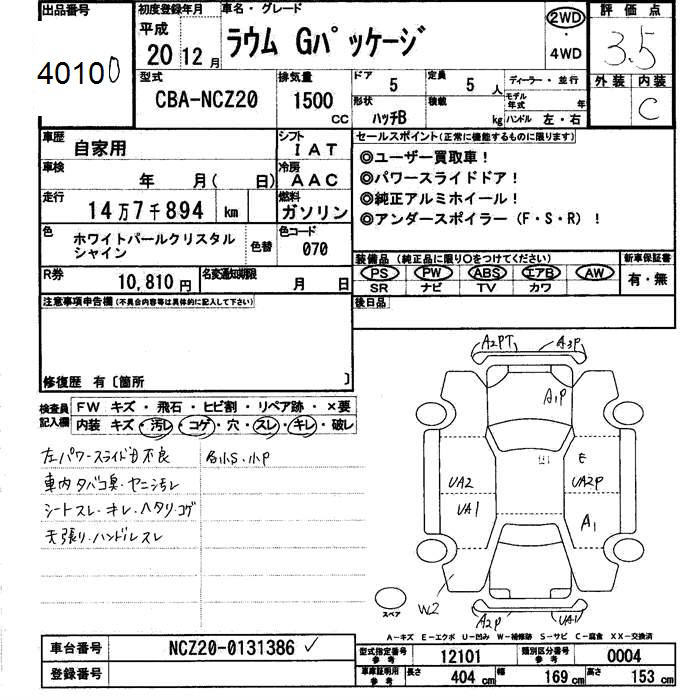 出品番号
40100
初度登録年月
平成
20 12 月
車名・グレード
ラウム Gパッケージ
2WD
・
4WD
評価点
3.5
型式
CBA-NCZ20
排気量
1500 CC
ドア
5
定員
5 人
ディーラー・並行
形状
ハッチB
積載
kg
モデル年式 年
ハンドル 左・右
外装 内装
C
車歴
自家用
シフト
IAT
車検
年 月( 日)
冷房
AAC
走行
14万7千894 km
燃料
ガソリン
色
ホワイトパールクリスタル
シャイン
色替
色コード
070
R券
10,810 円
名変通知期限
月 日
セールスポイント(正常に機能するものに限ります)
◎ユーザー買取車!
◎パワースライドドア!
◎純正アルミホイール!
◎アンダースポイラー(F・S・R)!
装備品(純正品に限り○をつけてください)
新車保証書
PS PW ABS エアB AW
有・無
SR ナビ TV カワ
後日品
注意事項申告欄(不具合内容等は具体的に記入して下さい)
修復歴 有〔箇所 〕
検査員
記入欄
FW キズ・飛石・ヒビ割・リペア跡・×要
内装 キズ・汚レ・コゲ・穴・スレ・キレ・破レ
左パワースライド 不良
各小S、小P
車内タバコ臭・ヤニ汚レ
シートスレ・キレ・ヘタリ・コゲ
天張り・ハンドルスレ
A2PT
A3P
A1P
E
UA2
UA2P
UA1
A1
W2
A2P
UA1
スペア
A-キズ E-エクボ U-凹み W-補修跡 S-サビ C-腐食 XX-交換済
車台番号
NCZ20-0131386 ✓
登録番号
型式指定番号
参考
12101
類別区分番号
参考
0004
車庫証明用
参考
長さ
404 cm
幅
169 cm
高さ
153 cm